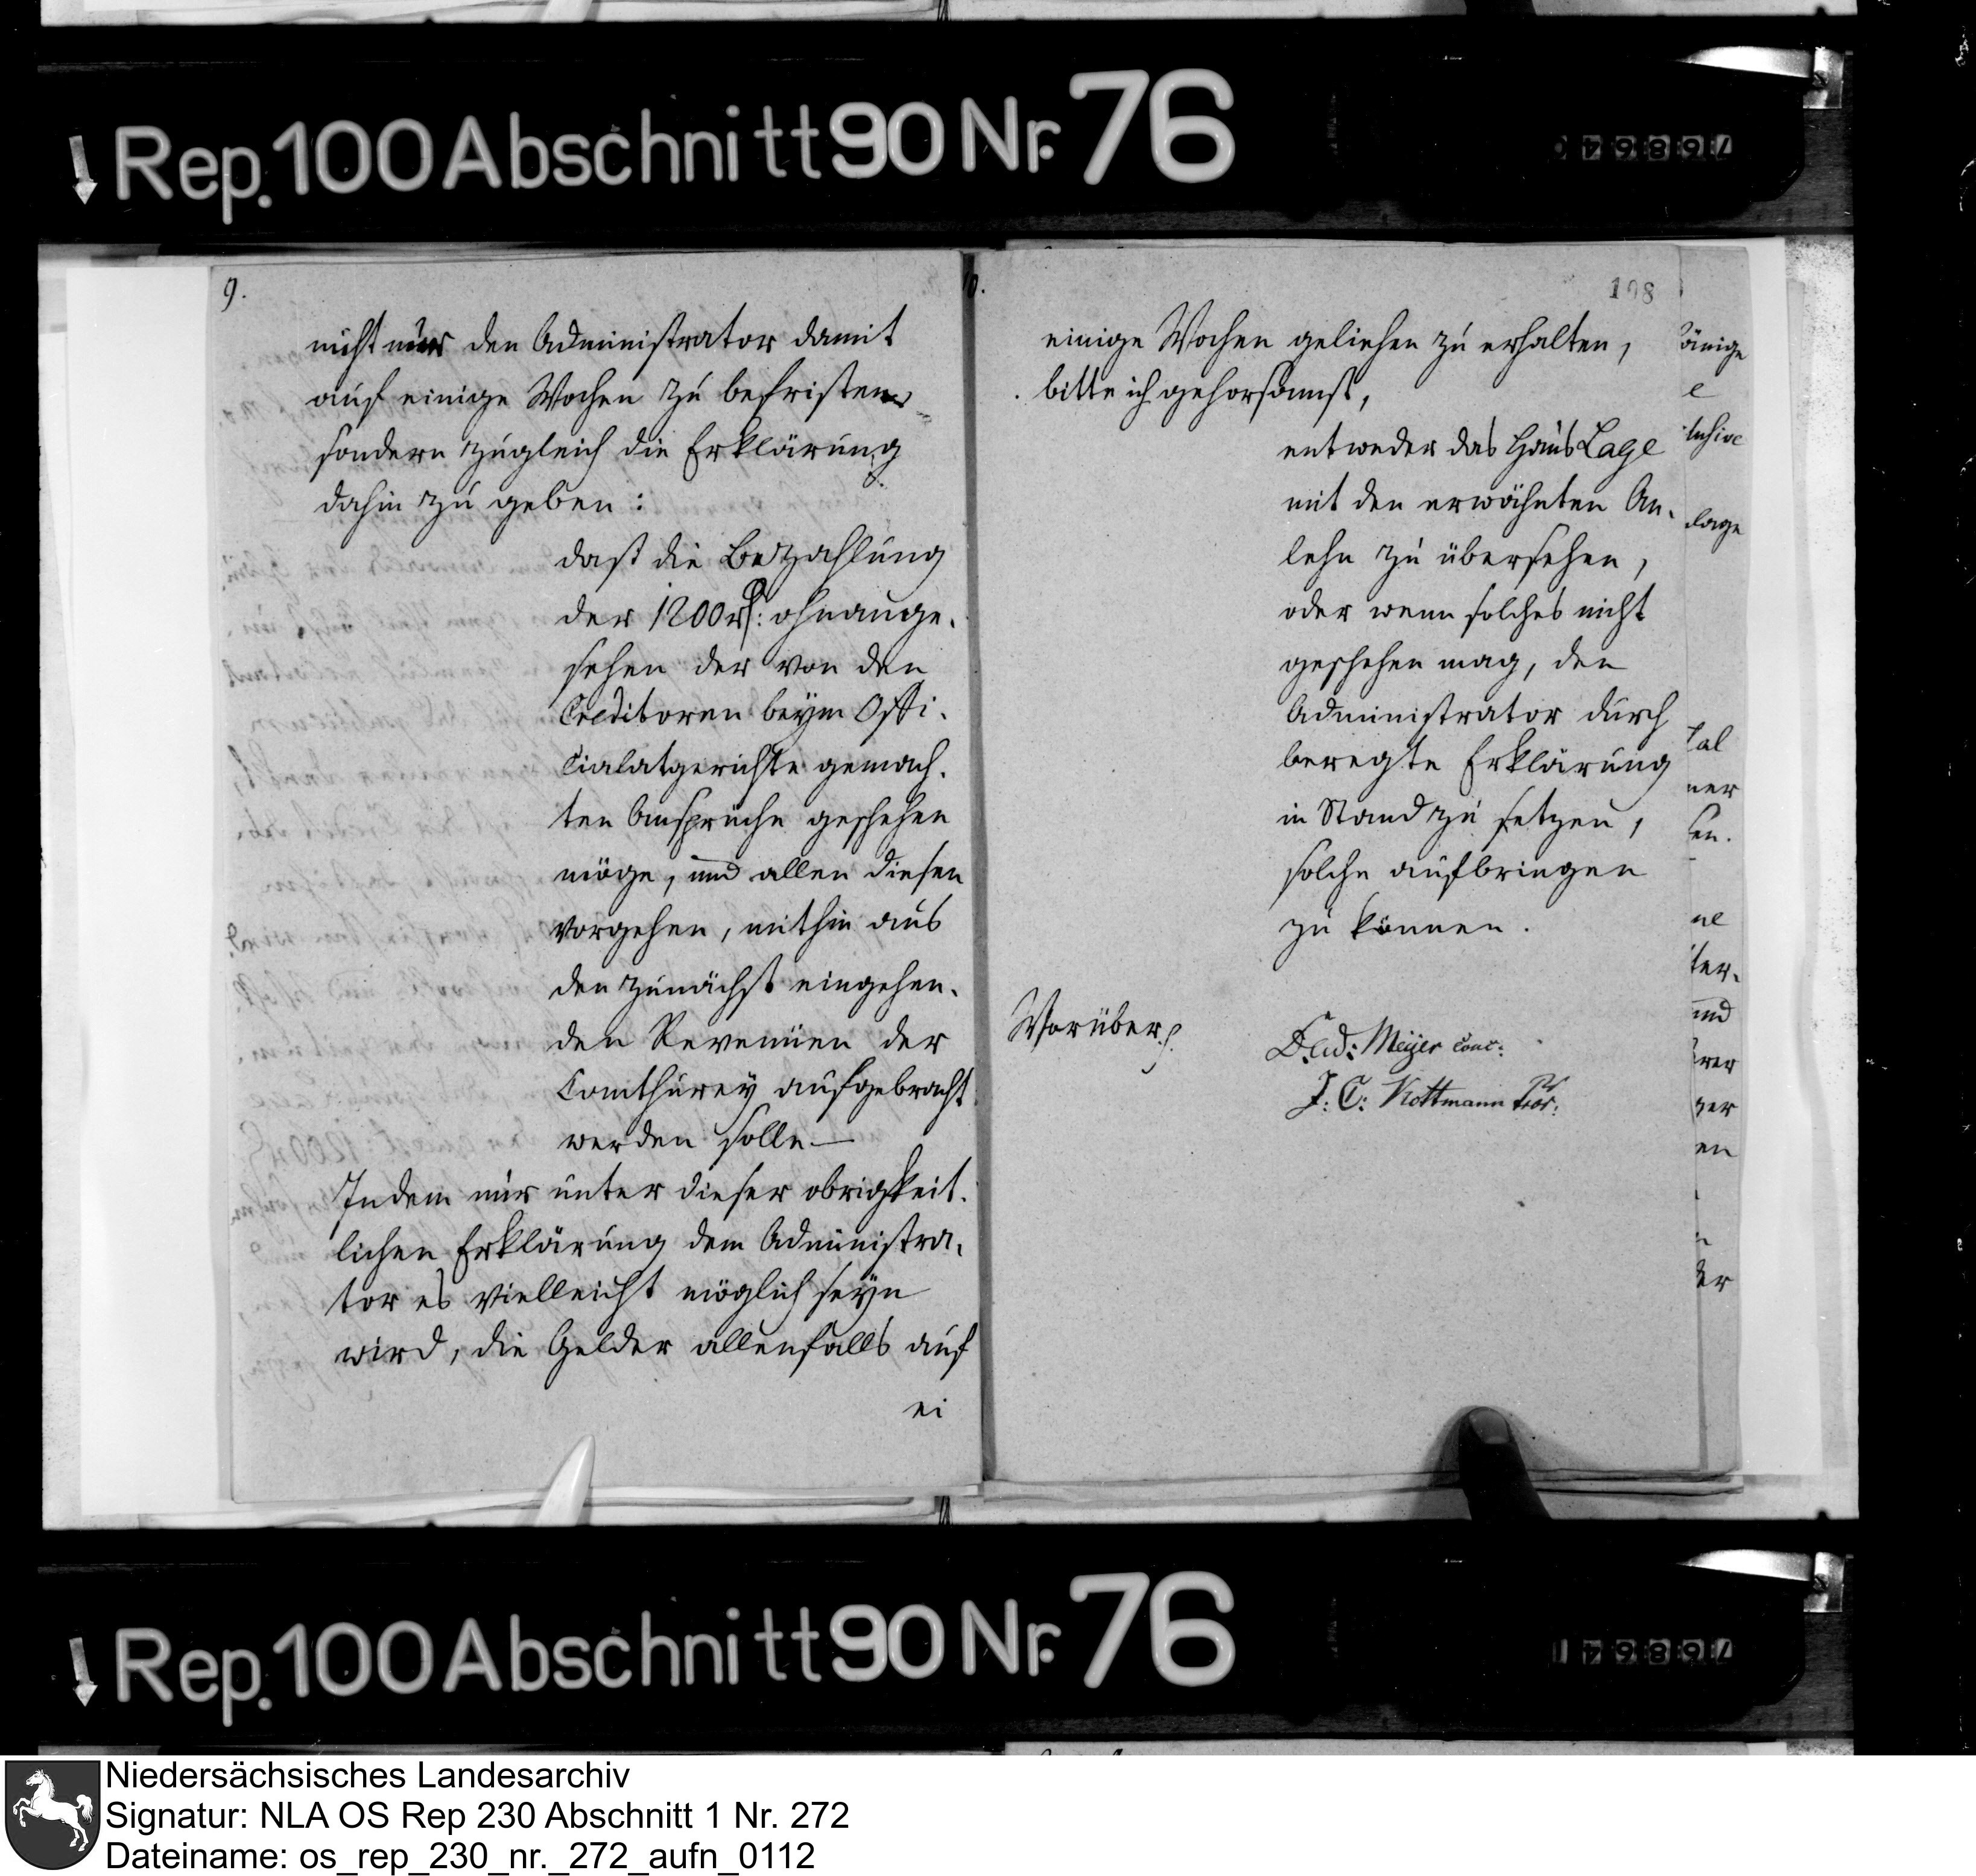 Rep. 100 Abschnitt 90 Nr. 76
9.
nicht nur den Administrator damit
auf einige Wochen zu befristen,
sondern zugleich die Erklärung
dahin zu geben:
daß die Bezahlung
der 1200 rthlr: ohnange-
sehen der von den
Creditoren beym Offi-
cialatgerichte gemach-
ten Ansprüche geschehen
möge, und allen diesen
vorgehen, mithin aus
den zunächst eingehen-
den Revenüen der
Comthurey aufgebracht
werden solle —
Indem nur unter dieser obrigkeit-
lichen Erklärung dem Administra-
tor es vielleicht möglich seyn
wird, die Gelder allenfalls auf
ei
10.
108
einige Wochen geliehen zu erhalten,
bitte ich gehorsamst,
entweder das Haus Lage
mit den erwähnten An-
lehn zu übersehen,
oder wenn solches nicht
geschehen mag, den
Administrator durch
beregte Erklärung
in Stand zu setzen,
solche aufbringen
zu können.
Worüber
Meyer conc:
J: C: Kottmann Pror:
Rep. 100 Abschnitt 90 Nr. 76
Niedersächsisches Landesarchiv
Signatur: NLA OS Rep 230 Abschnitt 1 Nr. 272
Dateiname: os_rep_230_nr._272_aufn_0112